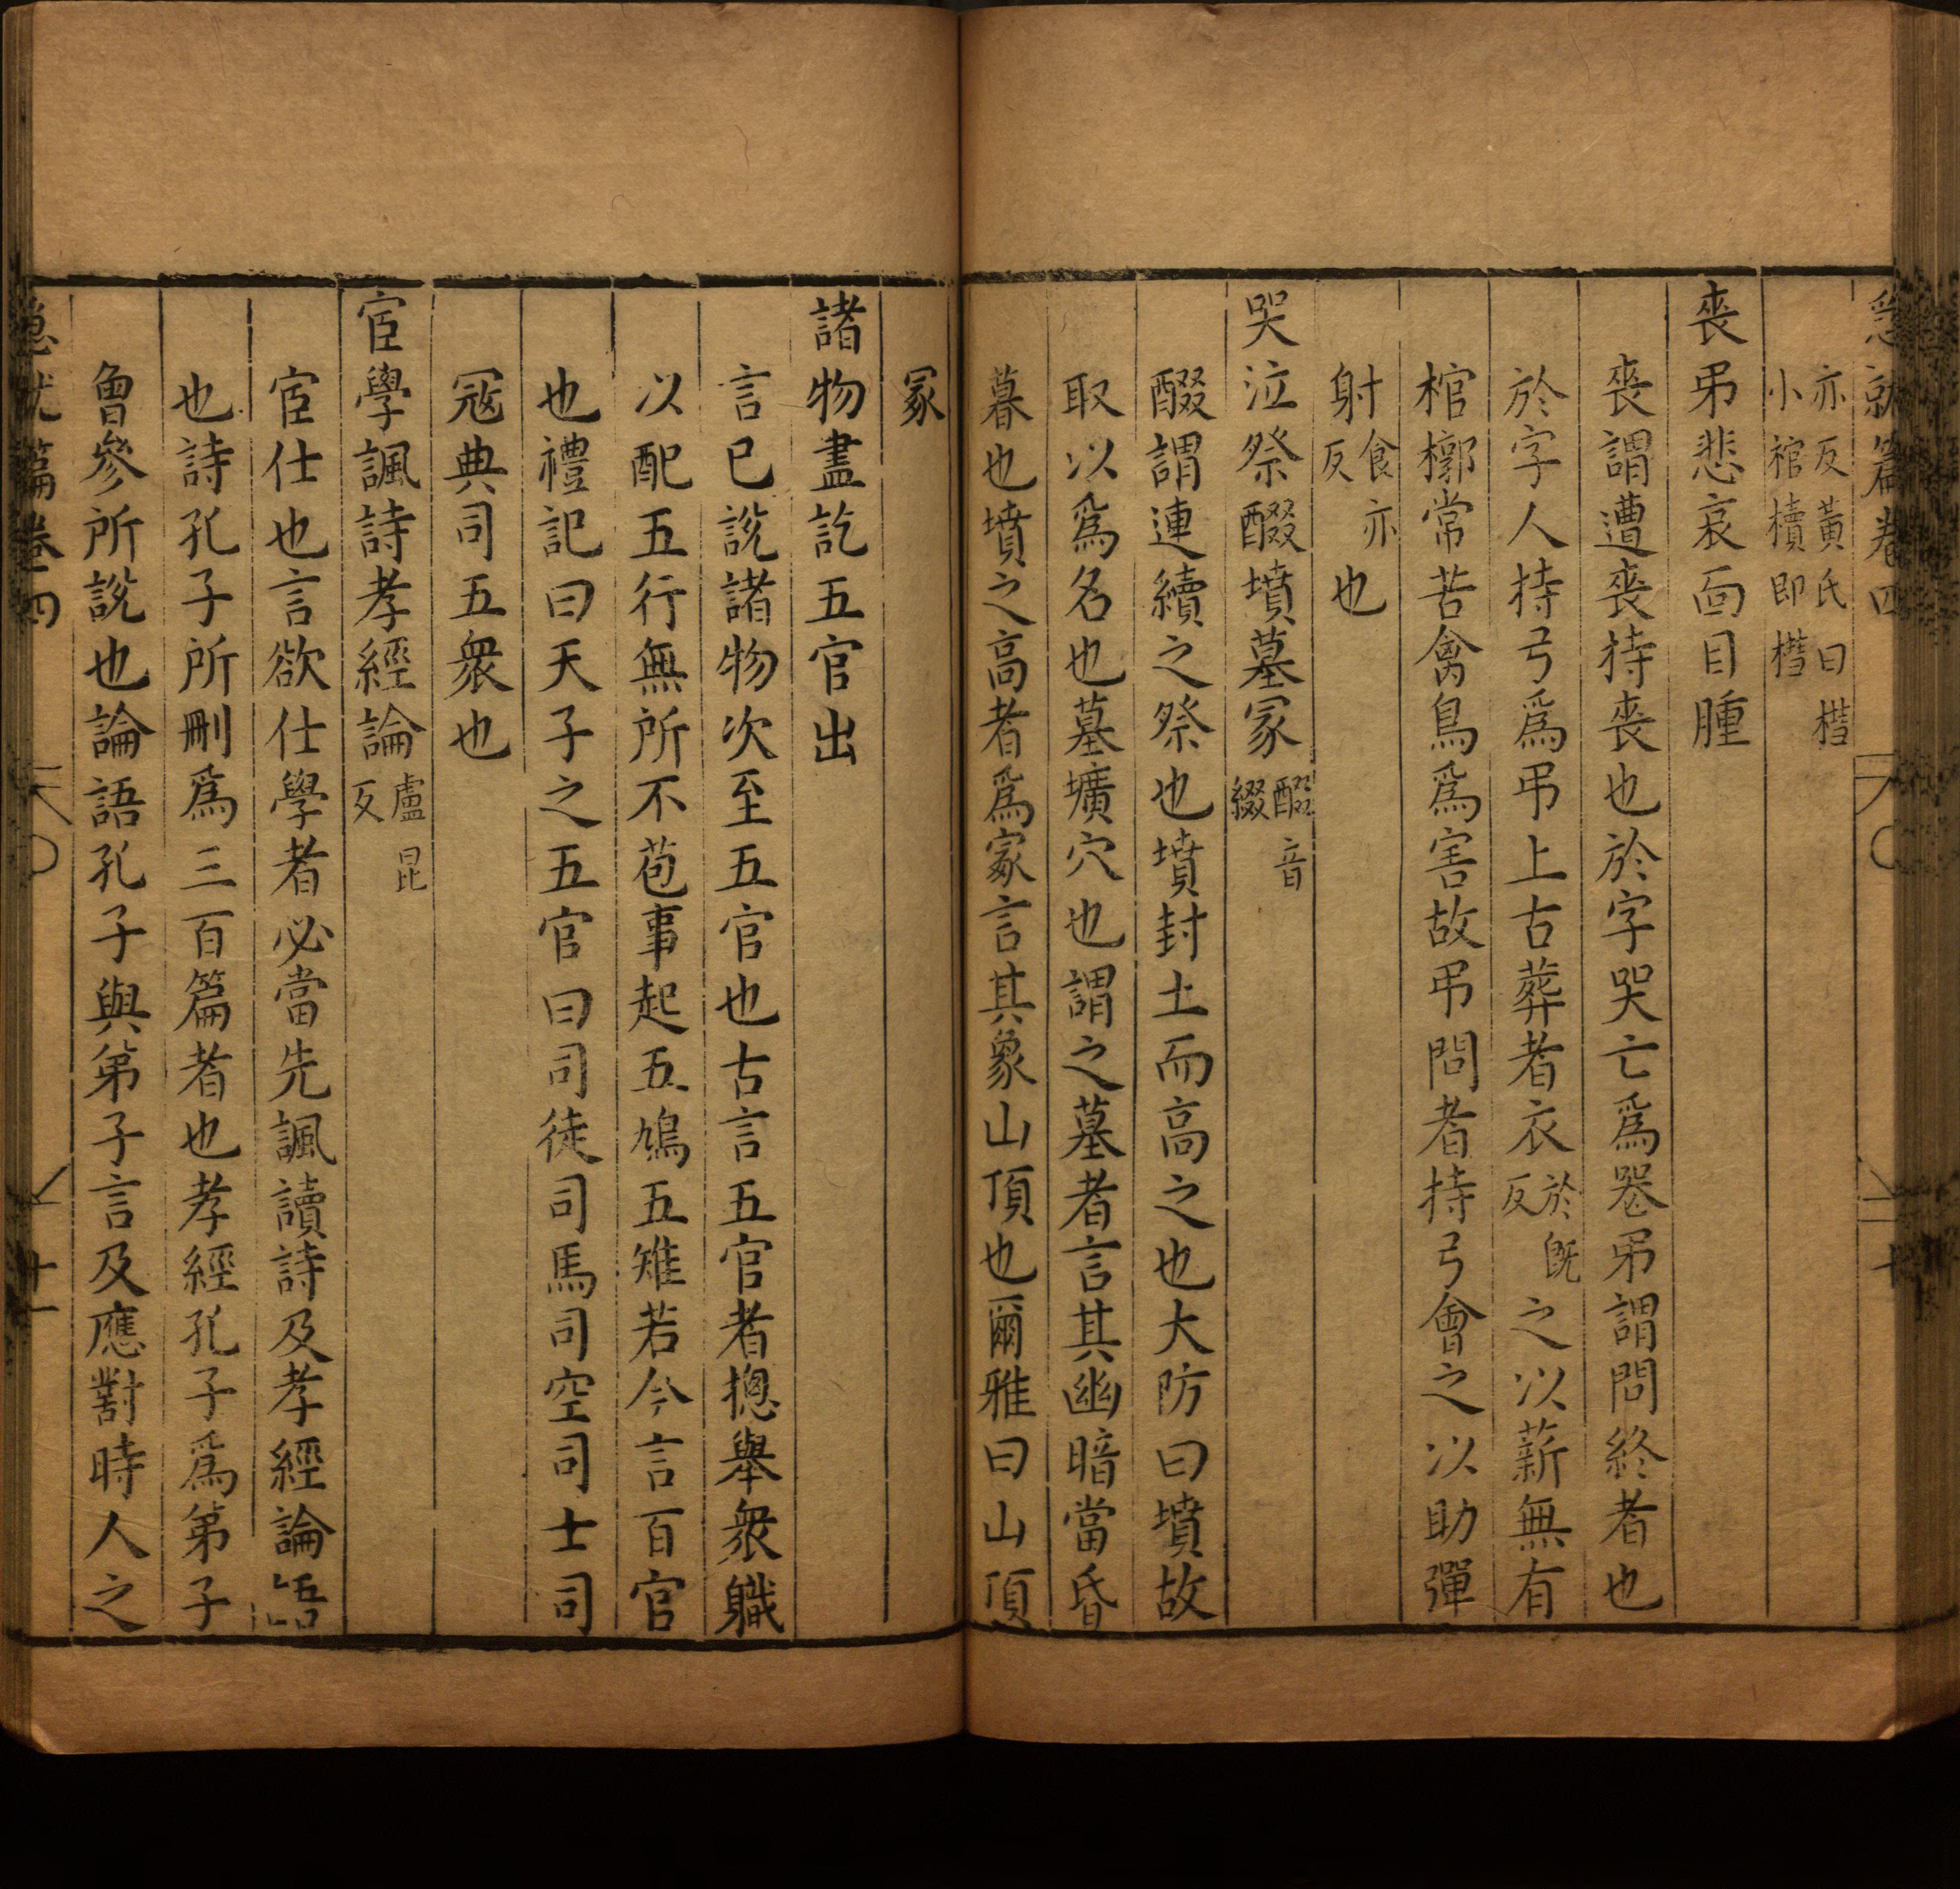 急就篇卷四
十
亦反黃氏曰槥
小棺櫝即槥
喪弔悲哀面目腫
喪謂遭喪持喪也於字哭亡爲喪弔謂問終者也
於字人持弓爲弔上古葬者衣於旣反之以薪無有
棺槨常苦禽鳥爲害故弔問者持弓會之以助彈
射食亦反也
哭泣祭醊墳墓冢醊音綴
醊謂連續之祭也墳封土而高之也大防曰墳故
取以爲名也墓壙穴也謂之墓者言其幽暗當昏
暮也墳之高者爲冢言其象山頂也爾雅曰山頂
冢
諸物盡訖五官出
言已說諸物次至五官也古言五官者摠舉衆職
以配五行無所不苞事起五鳩五雉若今言百官
也禮記曰天子之五官曰司徒司馬司空司士司
冦典司五衆也
宦學諷詩孝經論盧昆反
宦仕也言欲仕學者必當先諷讀詩及孝經論語
也詩孔子所刪爲三百篇者也孝經孔子爲第子
曾參所說也論語孔子與第子言及應對時人之
急就篇卷四
十一